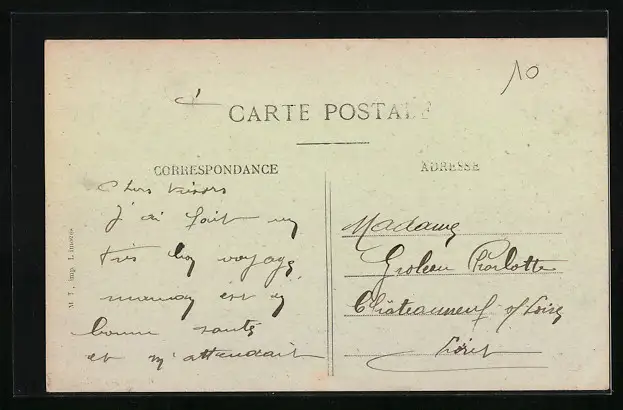 10
CARTE POSTALE
CORRESPONDANCE
ADRESSE
Chers voisins
J'ai fait un
très bon voyage
maman est en
bonne santé
et m'attendait
Madame
Groleau Charlotte
Châteauneuf s/ Loire
Loiret
M. T., imp. Limoges